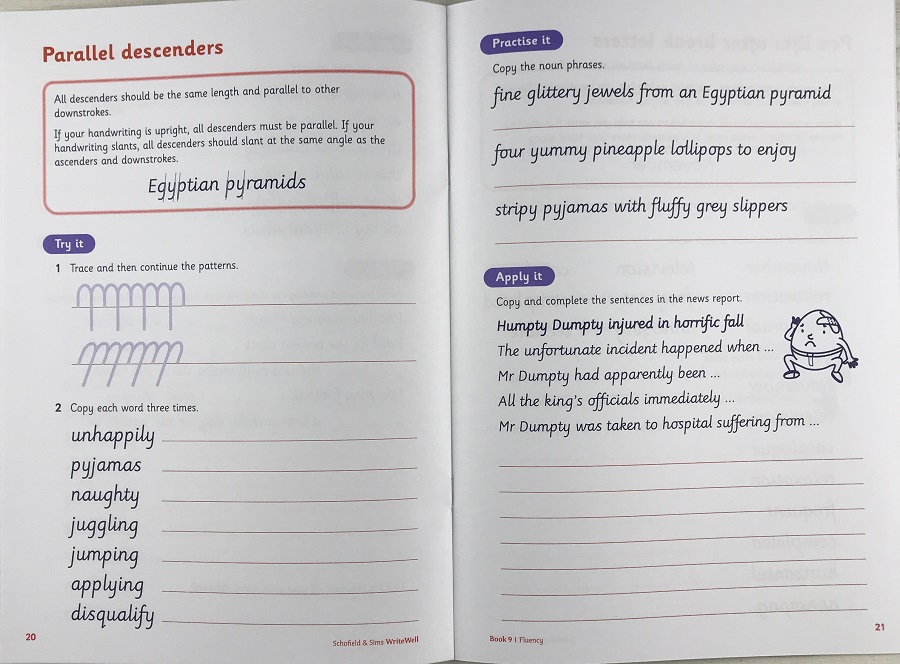 Parallel descenders
All descenders should be the same length and parallel to other
downstrokes.
If your handwriting is upright, all descenders must be parallel. If your
handwriting slants, all descenders should slant at the same angle as the
ascenders and downstrokes.
Egyptian pyramids
Try it
1 Trace and then continue the patterns.
2 Copy each word three times.
unhappily
pyjamas
naughty
juggling
jumping
applying
disqualify
20
Schofield & Sims WriteWell
Practise it
Copy the noun phrases.
fine glittery jewels from an Egyptian pyramid
four yummy pineapple lollipops to enjoy
stripy pyjamas with fluffy grey slippers
Apply it
Copy and complete the sentences in the news report.
Humpty Dumpty injured in horrific fall
The unfortunate incident happened when ...
Mr Dumpty had apparently been ...
All the king's officials immediately ...
Mr Dumpty was taken to hospital suffering from ...
Book 9 | Fluency
21